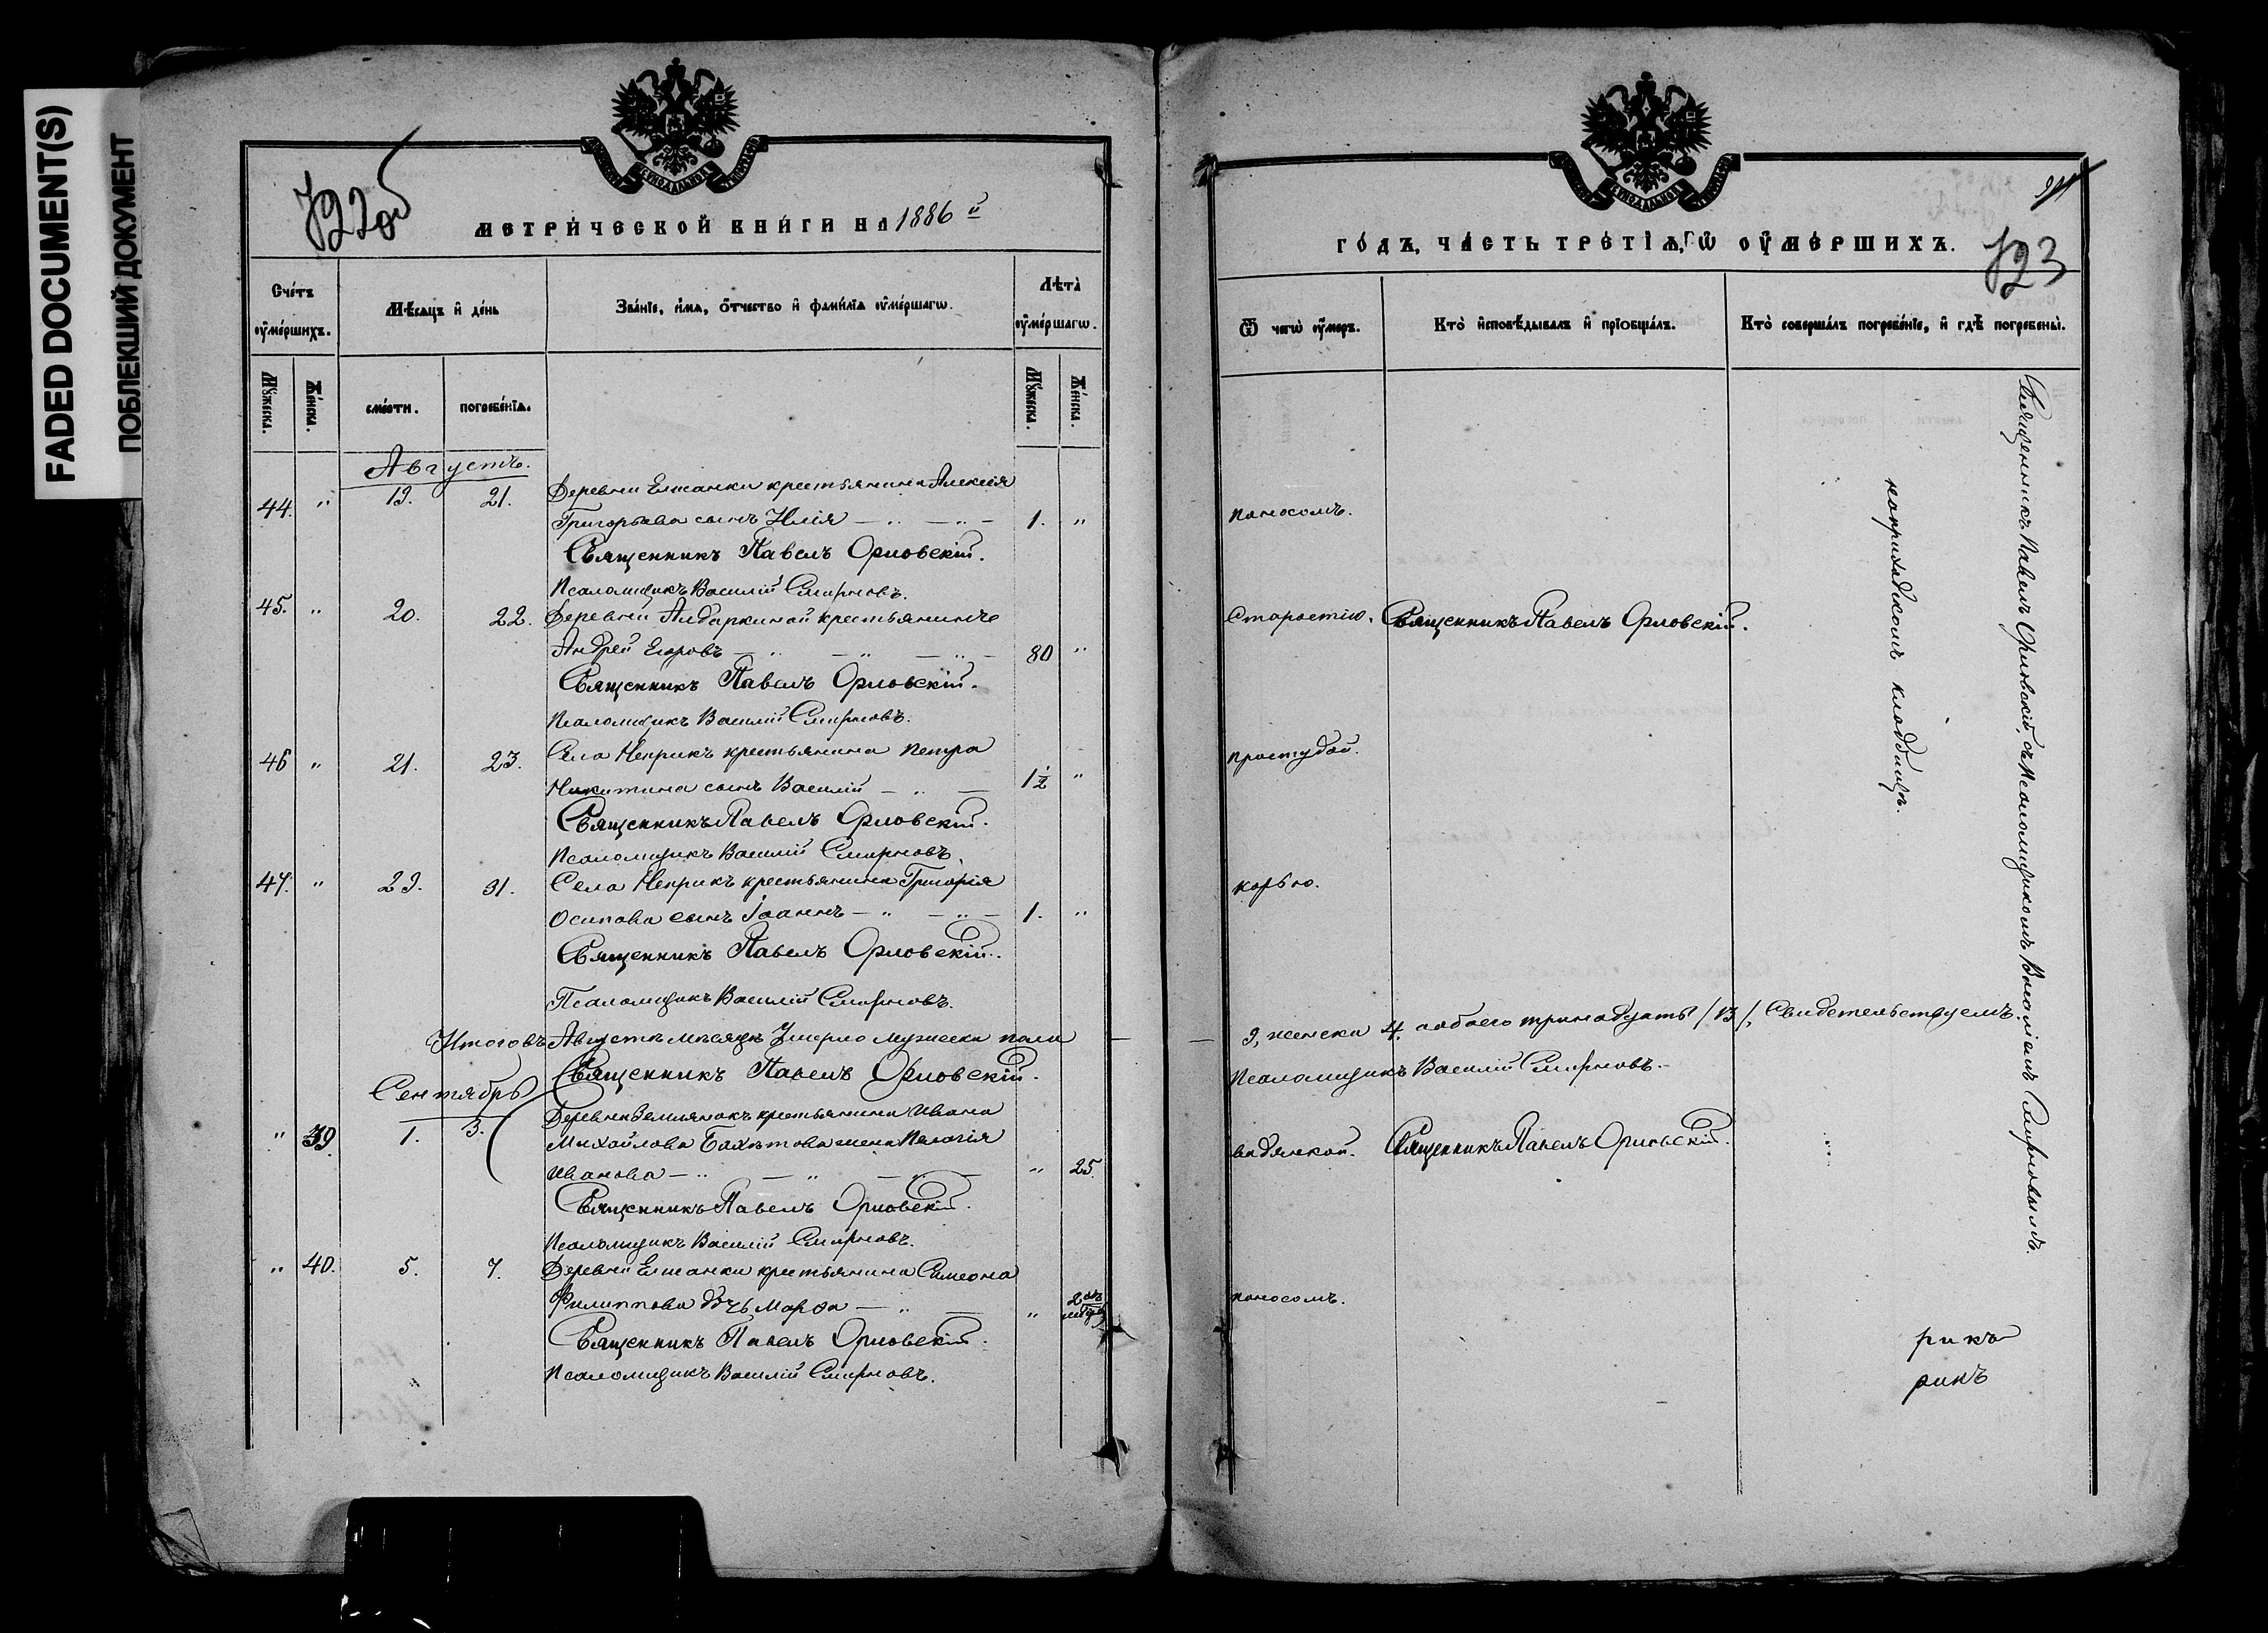 FADED DOCUMENT(S)
ПОБЛЕКШИЙ ДОКУМЕНТ
МЕТРИЧЕСКОЙ КНИГИ НА 1886 й
Счетъ умершихъ.
Мѣсяцъ и день
Званіе, имя, отчество и фамилія умершагω.
Лѣта умершагω.
Мужеска.
Женска.
смерти.
погребенія.
Мужеска.
Женска.
Августъ.
44. " 19. 21. Деревни Елшанки крестьянина Алексія
Григорьева сынъ Илія — " — " — 1. "
Священникъ Павелъ Орловскій.
Псаломщикъ Василій Смирновъ.
45. " 20. 22. Деревни Алдаркиной крестьянинъ
Андрей Егоровъ — " — " — " — 80 "
Священникъ Павелъ Орловскій.
Псаломщикъ Василій Смирновъ.
46 " 21. 23. Села Неприкъ крестьянина Петра
Никитина сынъ Василій — " — 1½ "
Священникъ Павелъ Орловскій.
Псаломщикъ Василій Смирновъ.
47. " 29. 31. Села Неприкъ крестьянина Григорія
Осипова сынъ Іоаннъ — " — " — 1. "
Священникъ Павелъ Орловскій.
Псаломщикъ Василій Смирновъ.
Итого въ Августѣ мѣсяцѣ Умерло мужеска пола
Священникъ Павелъ Орловскій.
Сентябрь
" 39. 1. 3. Деревни Землянокъ крестьянина Ивана
Михайлова жена Пелагія
Иванова — " — " — " — " 25.
Священникъ Павелъ Орловскій.
Псаломщикъ Василій Смирновъ.
" 40. 5. 7. Деревни Елшанки крестьянина Симеона
Филиппова дочь Марѳа — " — "
Священникъ Павелъ Орловскій.
Псаломщикъ Василій Смирновъ.
ГОДЪ, ЧАСТЬ ТРЕТІЯ, Ѡ УМЕРШИХЪ.
723
Ѿ чегω умеръ.
Кто исповѣдывалъ и пріобщалъ.
Кто совершалъ погребеніе, и гдѣ погребены.
поносомъ.
Старостію. Священникъ Павелъ Орловскій.
простудой.
корью.
9, женска 4. обоего тринадцать /13/, Свидетельствуемъ.
Псаломщикъ Василій Смирновъ.
водянкой. Священникъ Павелъ Орловскій.
поносомъ.
Священникъ Павелъ Орловскій, съ Псаломщикомъ Василіемъ Смирновымъ.
на приходскомъ кладбищѣ.
рикъ
рикъ